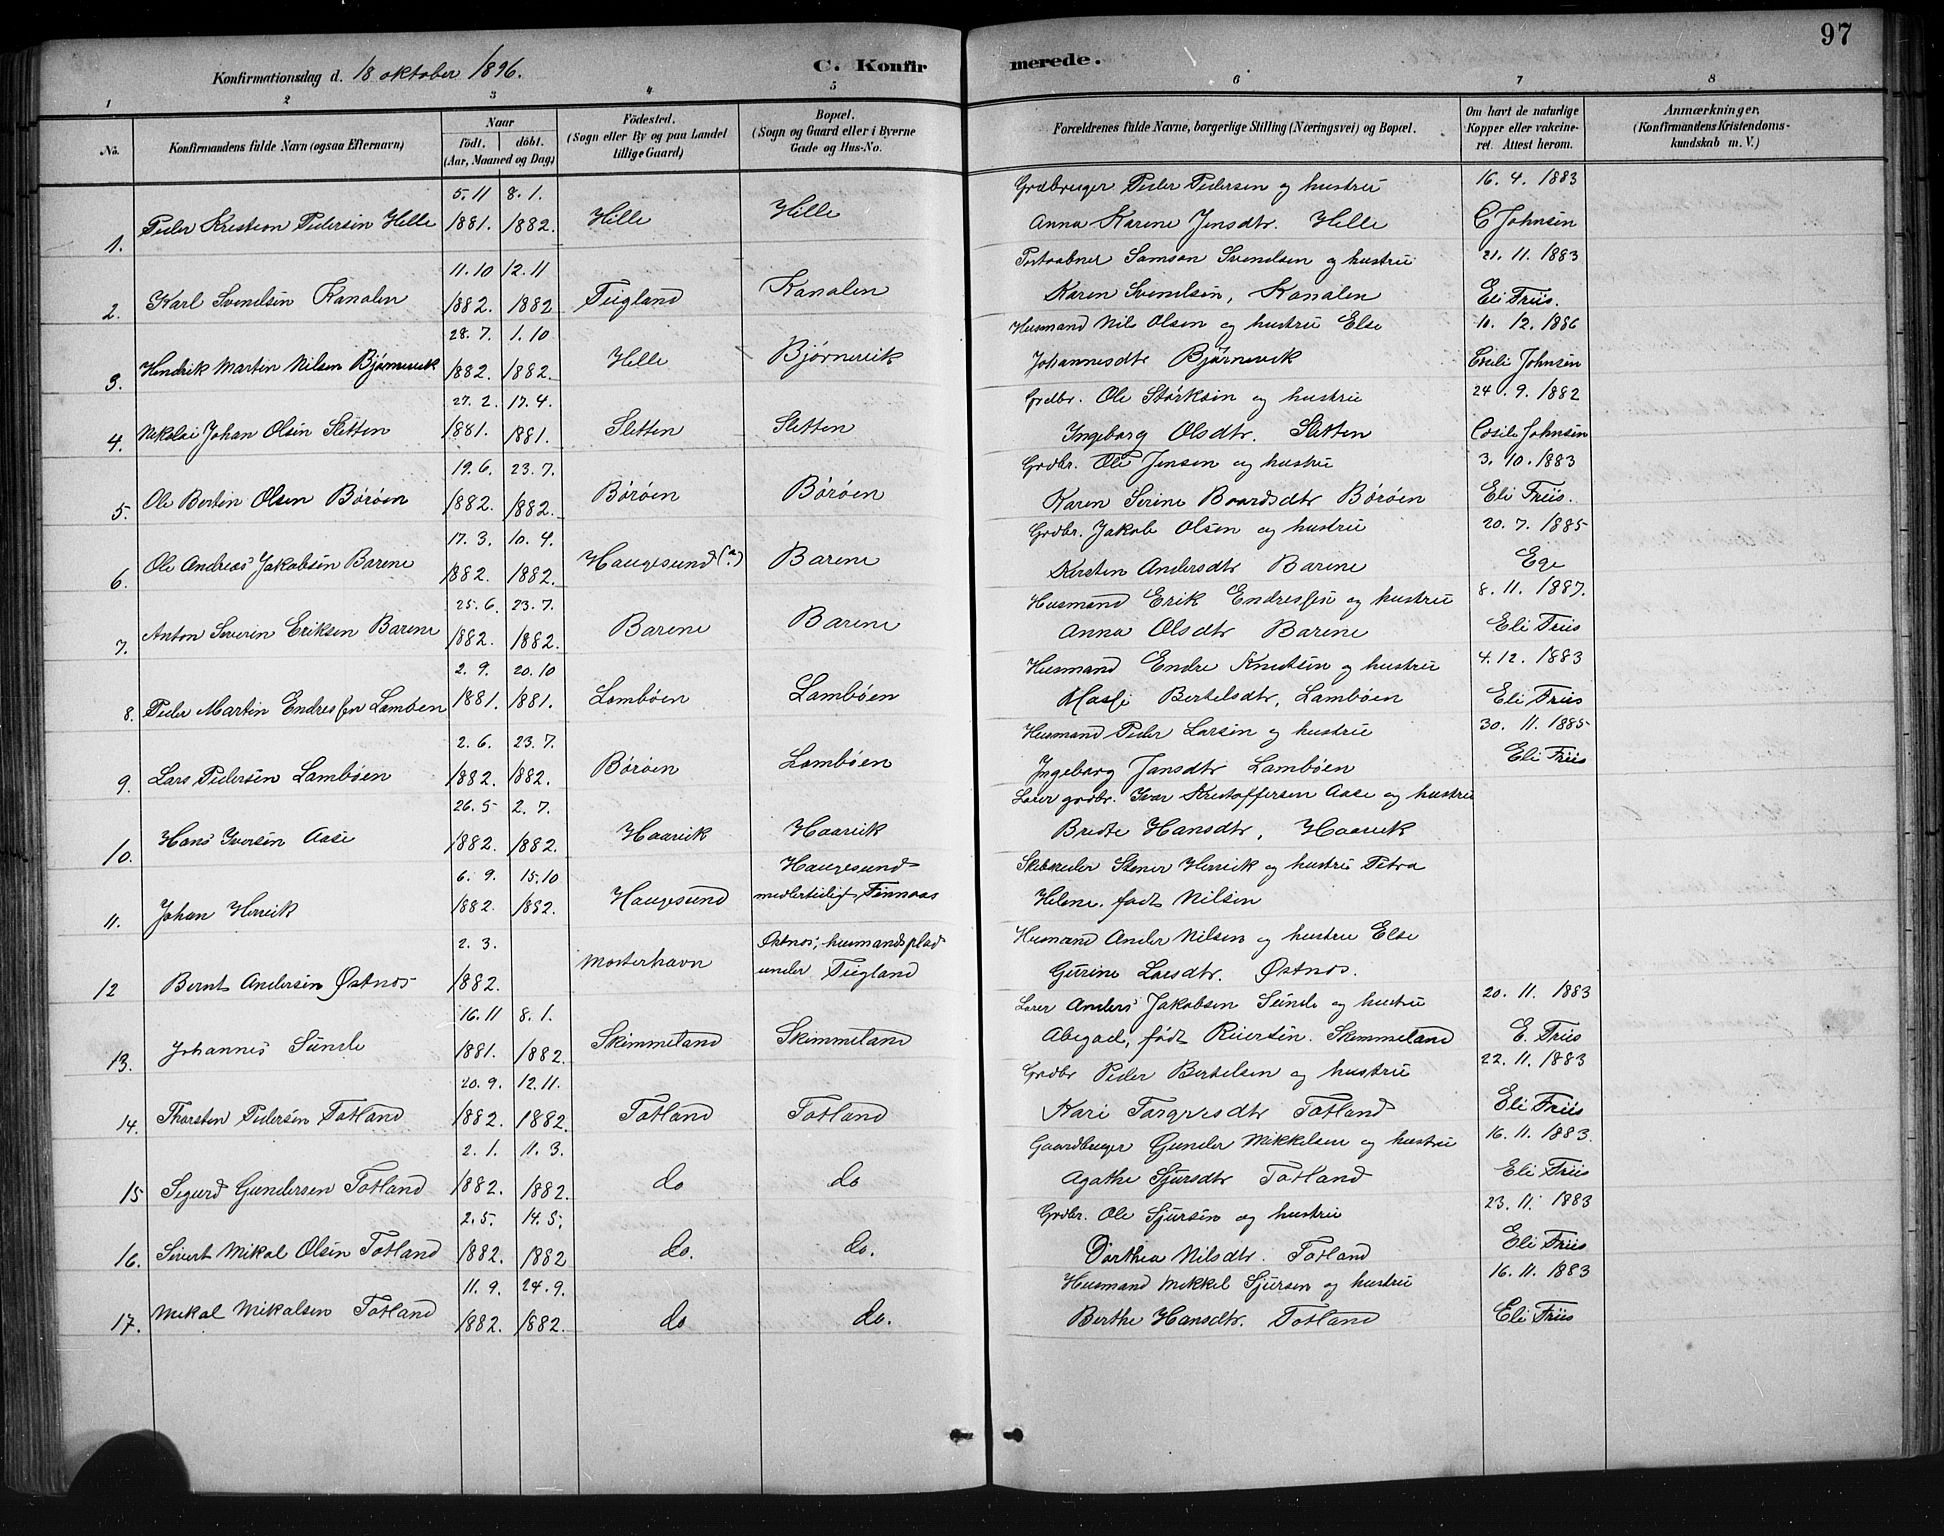 97
Konfirmationsdag d. 18 oktober 1896. C. Konfirmerede.
1 2 3 4 5 6 7 8
No. Konfirmandens fulde Navn (ogsaa Efternavn) Naar födt. döbt. (Aar, Maaned og Dag) Födested. (Sogn eller By og paa Landet tillige Gaard) Bopæl. (Sogn og Gaard eller i Byerne Gade og Hus-No. Forældrenes fulde Navne, borgerlige Stilling (Næringsvei) og Bopæl. Om havt de naturlige Kopper eller vakcineret. Attest herom. Anmærkninger, (Konfirmandens Kristendomskundskab m. V.)
5. 11 8. 1. Grdbruger Peder Pedersen og hustru 16. 4. 1883
1. Peder Kristian Pedersen Hille 1881. 1882. Hille Hille Anna Karine Jensdtr. Hille C Johnsen
11. 10 12. 11 Postaabner Samson Svendsen og hustru 21. 11. 1883
2. Karl Svendsen Kanalen 1882. 1882 Tegland Kanalen Karen Svendsen, Kanalen Eli Friis.
28. 7. 1. 10 Husmand Nils Olsen og hustru Else 10. 12. 1886
3. Hendrik Martin Nilsen Bjørnevik 1882. 1882. Hille Bjørnevik Johannesdtr Bjørnevik Cecili Johnsen
27. 2. 17. 4. Grdbr. Ole Størksen og hustru 24. 9. 1882
4. Nikolai Johan Olsen Sletten 1881. 1881. Sletten Sletten Ingeborg Olsdtr. Sletten Cecile Johnsen
19. 6. 23. 7. Grdbr. Ole Jensen og hustru 3. 10. 1883
5. Ole Bertin Olsen Børøen 1882. 1882. Børøen Børøen Karen Serine Baardsdtr Børøen Eli Friis.
17. 3. 10. 4. Grdbr. Jakob Olsen og hustru 20. 7. 1885
6. Ole Andreas Jakobsen Barene 1882. 1882. Haugesund (?) Barene Kirsten Andersdtr Barene Ege
25. 6. 23. 7. Husmand Erik Endressen og hustru 8. 11. 1887.
7. Anton Severin Eriksen Barene 1882. 1882. Barene Barene Anna Olsdtr Barene Eli Friis
2. 9. 20. 10 Husmand Endre Knutsen og hustru 4. 12. 1883
8. Peder Martin Endressen Lambøen 1881. 1881. Lambøen Lambøen Massi Bertelsdtr, Lambøen Eli Friis
2. 6. 23. 7. Husmand Peder Larsen og hustru 30. 11. 1885
9. Lars Pedersen Lambøen 1882. 1882. Børøen Lambøen Ingeborg Jansdtr Lambøen Eli Friis
26. 5 2. 7. Lærer grdbr. Ivar Kristoffersen Aase og hustru
10. Hans Iversen Aase 1882. 1882. Haavik Haavik Bridte Hansdtr, Haavik
6. 9. 15. 10 Haugesund Skibsreder Stener Hervik og hustru Petra
11. Johan Hervik 1882. 1882. Haugesund medlertidigt Finnaas Helene, født Nilsen
2. 3. Østnes, husmandsplad Husmand Ander Nilsen og hustru Else
12 Bernt Andersen Østnes 1882. Mosterhavn under Tegland Gurine Larsdtr. Østnes.
16. 11 8. 1. Lærer Anders Jakobsen Sunde og hustru 20. 11. 1883
13. Johannes Sunde 1881. 1882. Skimmeland Skimmeland Abegael, født Reiersen. Skimmeland E. Friis
20. 9. 12. 11. Grdbr Peder Bertelsen og hustru 22. 11. 1883
14. Thorsten Pedersen Totland 1882. 1882. Totland Totland Kari Torgersdtr Totland Eli Friis
2. 1. 11. 3. Gaardbruger Gunder Mikkelsen og hustru 16. 11. 1883.
15 Sigurd Gundersen Totland 1882. 1882. do do Agathe Sjursdtr Totland Eli Friis
2. 5. 14. 5. Grdbr. Ole Sjursen og hustru 23. 11. 1883
16. Sivert Mikal Olsen Totland 1882. 1882 do. do. Dorthea Nilsdtr. Totland Eli Friis
11. 9. 24. 9. Husmand Mikkel Sjursen og hustru 16. 11. 1883
17. Mikal Mikalsen Totland 1882. 1882. do do. Berthe Hansdtr. Totland Eli Friis